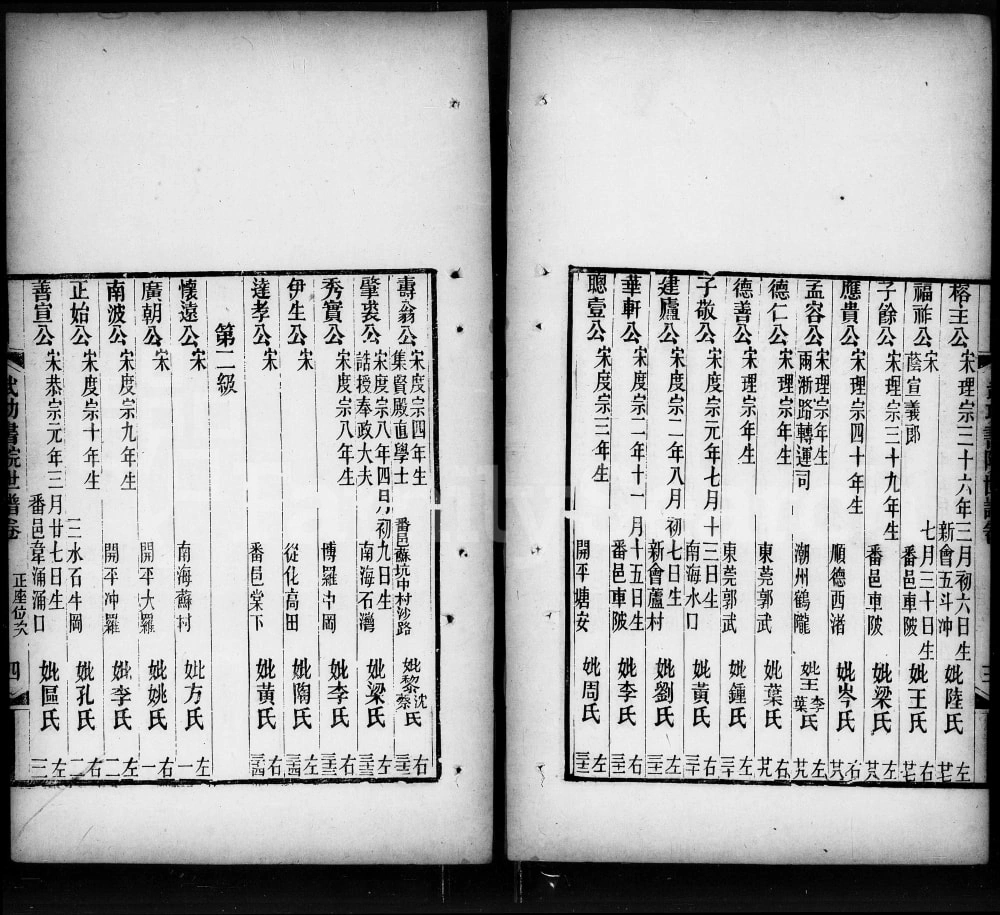 榕主公 宋理宗三十六年三月初六日生 新會五斗冲 妣陸氏 左
福祚公 宋蔭宣義郎 七月三十日生 番邑車陂 妣王氏 右
子餘公 宋理宗三十九年生 番邑車陂 妣梁氏 左
應貴公 宋理宗四十年生 順德西渚 妣岑氏 右
孟容公 宋理宗年生 兩淅路轉運司 潮州鶴隴 妣王李葉氏 左
德仁公 宋理宗年生 東莞郭武 妣葉氏 右
德善公 宋理宗年生 東莞郭武 妣鍾氏 左
子敬公 宋度宗元年七月十三日生 南海水口 妣黃氏 右
建廬公 宋度宗二年八月初七日生 新會蘆村 妣劉氏 左
華軒公 宋度宗二年十一月十五日生 番邑車陂 妣李氏 右
聰壹公 宋度宗三年生 開平塘安 妣周氏 左
壽翁公 宋度宗四年生 集賢殿直學士 番邑蘇坑中村沙路 妣黎沈蔡氏 右
肇裘公 宋度宗八年四月初九日生 誥授奉政大夫 南海石灣 妣梁氏 左
秀實公 宋度宗八年生 博羅中岡 妣李氏 右
伊生公 宋 從化高田 妣陶氏 左
達孝公 宋 番邑棠下 妣黃氏 右
第二級
懷遠公 宋 南海蘇村 妣方氏 左一
廣朝公 宋 開平大羅 妣姚氏 右一
南波公 宋度宗九年生 開平冲羅 妣李氏 左二
正始公 宋度宗十年生 三水石牛岡 妣孔氏 右二
善宣公 宋恭宗元年三月廿七日生 番邑韋涌涌口 妣區氏 左三
武功書院世譜卷 正座位次 四